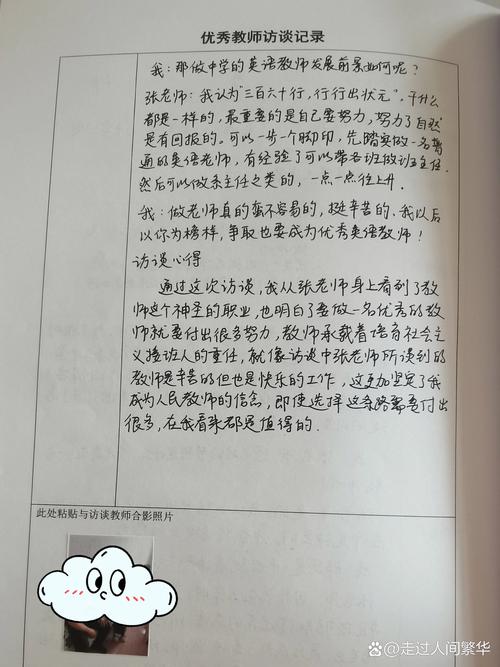 优秀教师访谈记录
我：那做中学的英语教师发展前景如何呢？
张老师：我认为"三百六十行，行行出状元"，干什么
都是一样的，最重要的是自己要努力，努力了自然
是有回报的。可以一步一个脚印，先踏实做一名普
通的英语老师，有经验了可以带各班做班主任.
然后可以做系主任之类的，一点一点往上升.
我：做老师真的蛮不容易的，挺辛苦的、我以后
以你为榜样，争取也要成为优秀英语教师！
访谈心得
通过这次访谈，我从张老师身上看到了教
师这个神圣的职业，也明白了要做一名优秀的教
师就要付出很多努力，教师承载着培育社会主
义接班人的重任，就像访谈中张老师所谈到的
教师是辛苦的但也是快乐的工作，这更加坚定了我
成为人民教师的信念，即使选择这条路需要付出
很多，在我看来都是值得的.
此处粘贴与访谈教师合影照片
走过人间繁华